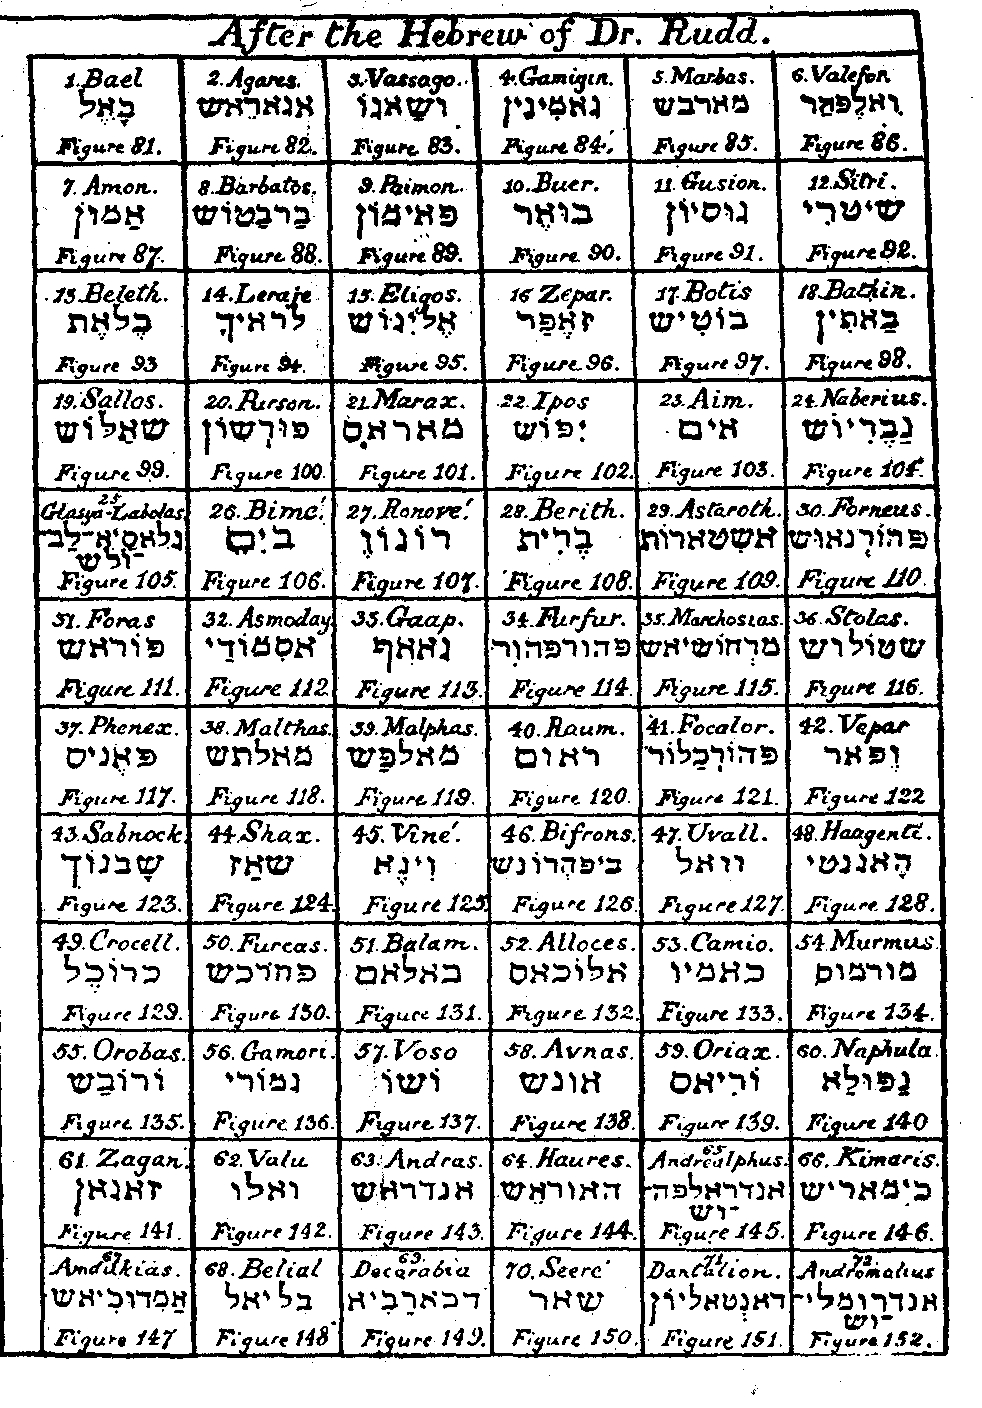 After the Hebrew of Dr. Rudd.
1. Bael
בָאֶל
Figure 81.
2. Agares.
אגאראש
Figure 82.
3. Vassago.
ושָאגוֹ
Figure 83.
4. Gamigin.
גאמִיגִין
Figure 84.
5. Marbas.
מארבש
Figure 85.
6. Valefon
Figure 86.
7. Amon.
אַמוֹן
Figure 87.
8. Barbatos.
בַרבַטוֹש
Figure 88.
9. Paimon.
פאימוֹן
Figure 89.
10. Buer.
בואֵר
Figure 90.
11. Gusion.
גוסיוֹן
Figure 91.
12. Sitri.
שיטרִי
Figure 92.
13. Beleth.
בֶלאֶת
Figure 93
14. Leraje
לראיךָ
Figure 94.
15. Eligos.
אֶלִיגוֹש
Figure 95.
16 Zepar.
זאֶפַר
Figure 96.
17. Botis
בוֹטִיש
Figure 97.
18. Bathin.
בַאתִין
Figure 98.
19. Sallos.
שאַלוֹש
Figure 99.
20. Purson.
פורְשוֹן
Figure 100.
21. Marax.
מאראס
Figure 101.
22. Ipos
יִפוֹש
Figure 102.
23. Aim.
אים
Figure 103.
24. Naberius.
נַבֶרִיוֹש
Figure 104.
25
Glasya-Labolas
גלאסיא־לב־
־ולש
Figure 105.
26. Bimé.
בִים
Figure 106.
27. Ronové.
רוֹנוֹו
Figure 107.
28. Berith.
בֶרִית
Figure 108.
29. Astaroth.
אשטארות
Figure 109.
30. Forneus.
פהוֹרנאוש
Figure 110.
31. Foras
פוֹראש
Figure 111.
32. Asmoday
אסמוֹדַי
Figure 112
33. Gaap.
גאאף
Figure 113.
34. Furfur.
פהורפהור
Figure 114.
35. Marchosias.
מרחוֹשיאש
Figure 115.
36. Stolas.
שטוֹלוֹש
Figure 116.
37. Phenex.
פאֶניס
Figure 117.
38. Malthas.
מאלתש
Figure 118.
39. Malphas.
מאלפַש
Figure 119.
40. Raum.
ראום
Figure 120.
41. Focalor.
פהוֹרכַלוֹר
Figure 121.
42. Vepar
וֶפאר
Figure 122
43. Sabnock
שָבנוֹך
Figure 123.
44. Shax.
שאַז
Figure 124.
45. Viné.
וִינֶא
Figure 125.
46. Bifrons.
ביפהרוֹנש
Figure 126.
47. Uvall.
וואל
Figure 127.
48. Haagenti.
הָאגנטי
Figure 128.
49. Crocell.
כרוֹכֶל
Figure 129.
50. Furcas.
Figure 130.
51. Balam.
באלאם
Figure 131.
52. Alloces.
אלוֹכאס
Figure 132.
53. Camio.
כאמיו
Figure 133.
54. Murmus.
מורמוס
Figure 134.
55. Orobas.
וֹרוֹבַש
Figure 135.
56. Gamori.
גמוֹרי
Figure 136.
57. Voso
וֹשוֹ
Figure 137.
58. Avnas.
אונש
Figure 138
59. Oriax.
וֹרִיאס
Figure 139.
60. Naphula.
נַפוּלָא
Figure 140
61. Zagan.
זאגאן
Figure 141
62. Valu
ואלו
Figure 142.
63. Andras.
אנדראש
Figure 143.
64. Haures.
האוראש
Figure 144.
65
Andrealphus.
אנדראלפה־
־וש
Figure 145.
66. Kimaris.
כִימאריש
Figure 146.
67
Amdukias.
אמדוכיאש
Figure 147
68. Belial
בליאל
Figure 148
69
Decarabia
דכארביא
Figure 149.
70. Seeré
שאר
Figure 150.
71
Dantalion.
דאנטאליוֹן
Figure 151.
72
Andromalius
אנדרומלי־
־וש
Figure 152.